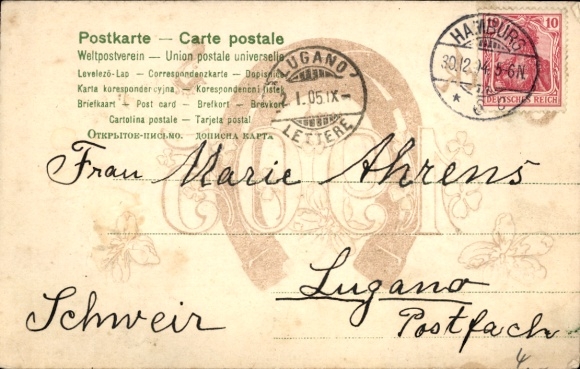 Postkarte – Carte postale
Weltpostverein – Union postale universelle
Levelező-Lap – Correspondenzkarte – Dopisnice
Karta korespondencyjna – Korespondenční lístek
Briefkaart – Post card – Brefkort – Brevkort
Cartolina postale – Tarjeta postal
Открытое-письмо. дописна карта
LUGANO
2. I. 05. IX –
LETTERE
HAMBURG
30.12.04. 5-6 N.
10
DEUTSCHES REICH
1905
Frau Marie Ahrens
Lugano
Postfach
Schweiz
4